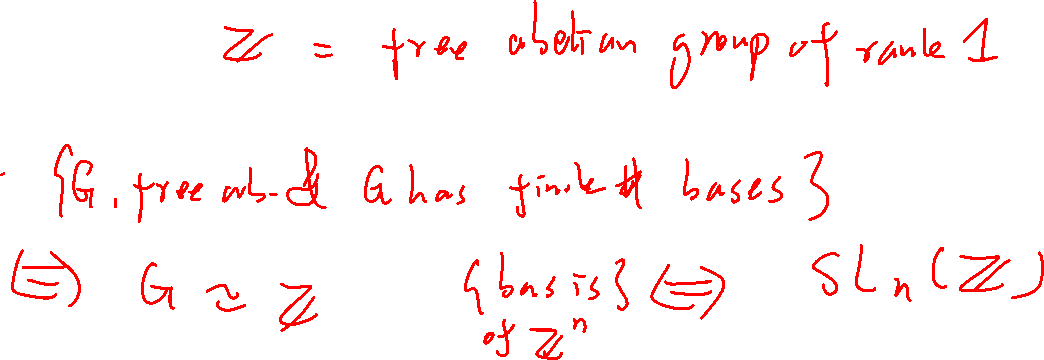 ℤ = free abelian group of rank 1
{G, free ab. & G has finite # bases}
⟺ G ≃ ℤ {basis of ℤⁿ} ⟺ SLₙ(ℤ)